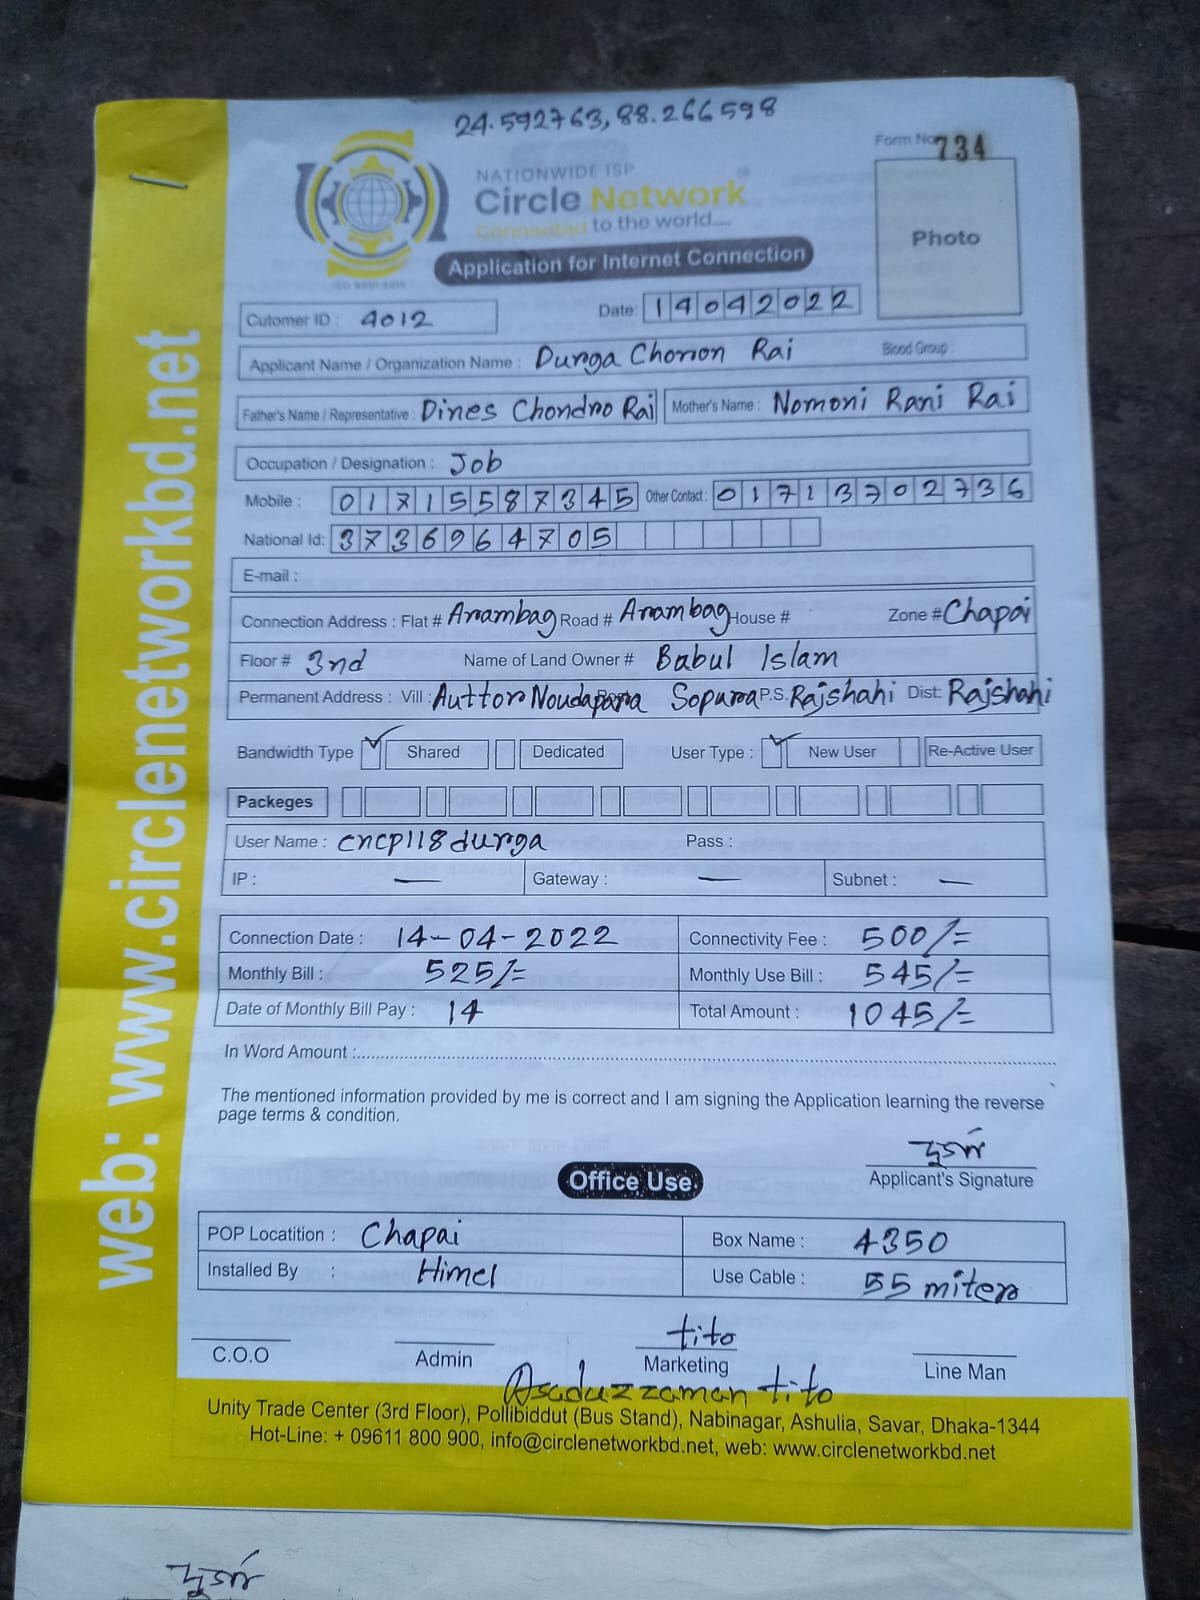 24.592763, 88.266598
Form No 734
NATIONWIDE ISP
Circle Network
Connected to the world....
ISO 9001:2015
Application for Internet Connection
Photo
Cutomer ID : 4012
Date: 14042022
Applicant Name / Organization Name : Durga Choron Rai Blood Group :
Father's Name / Representative : Dines Chondro Rai Mother's Name : Nomoni Rani Rai
Occupation / Designation : Job
Mobile : 01715587345 Other Contact : 01713702736
National Id: 3736964705
E-mail :
Connection Address : Flat # Arambag Road # Arambag House # Zone # Chapai
Floor # 3nd Name of Land Owner # Babul Islam
Permanent Address : Vill : Auttor Noudapara Sopura P.S. Rajshahi Dist: Rajshahi
Bandwidth Type Shared Dedicated User Type : New User Re-Active User
Packeges
User Name : cncp118durga Pass :
IP : — Gateway : — Subnet : —
Connection Date : 14-04-2022 Connectivity Fee : 500/=
Monthly Bill : 525/= Monthly Use Bill : 545/=
Date of Monthly Bill Pay : 14 Total Amount : 1045/=
In Word Amount :
The mentioned information provided by me is correct and I am signing the Application learning the reverse
page terms & condition.
দুর্গা
Applicant's Signature
Office Use
POP Locatition : Chapai Box Name : 4350
Installed By : Himel Use Cable : 55 miter
tito
C.O.O Admin Marketing Line Man
Asaduzzaman tito
Unity Trade Center (3rd Floor), Pollibiddut (Bus Stand), Nabinagar, Ashulia, Savar, Dhaka-1344
Hot-Line: + 09611 800 900, info@circlenetworkbd.net, web: www.circlenetworkbd.net
web: www.circlenetworkbd.net
দুর্গা